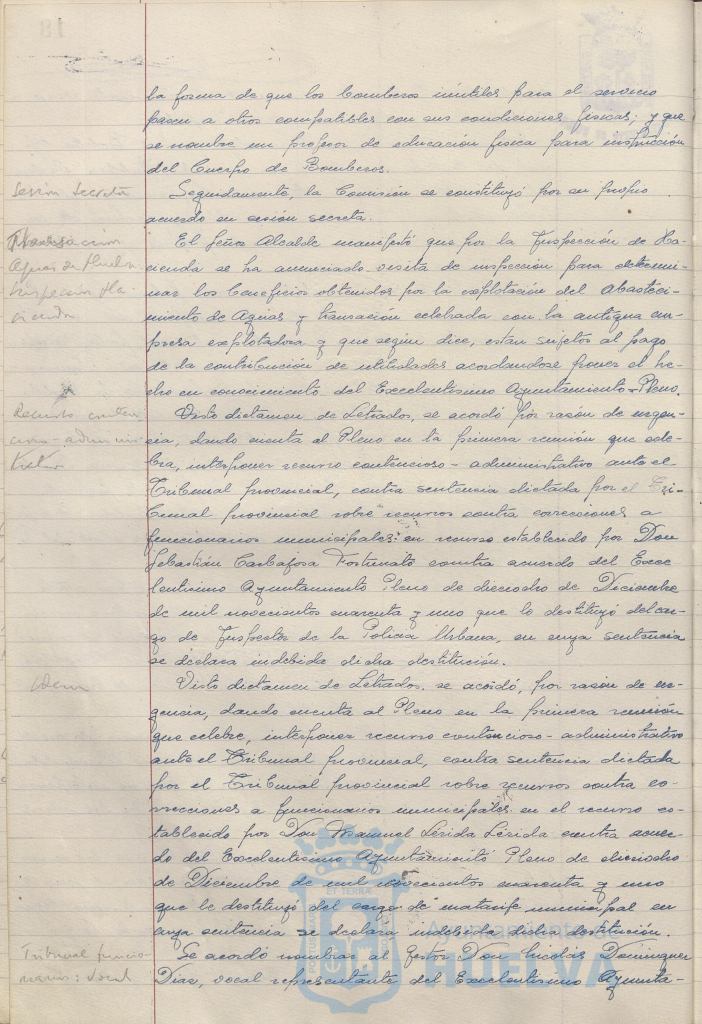 la forma de que los bomberos inútiles para el servicio
pasen a otros compatibles con sus condiciones físicas; y que
se nombre un profesor de educación física para instrucción
del Cuerpo de Bomberos.
Sesión secreta
Seguidamente, la Comisión se constituyó por su propio
acuerdo en sesión secreta.
Transacción
Aguas de Huelva
Inspección Ha-
cienda
El Señor Alcalde manifestó que por la Inspección de Ha-
cienda se ha anunciado visita de inspección para determi-
nar los beneficios obtenidos por la explotación del Abasteci-
miento de Aguas y transación celebrada con la antigua em-
presa explotadora y que según dice, están sujetos al pago
de la contribución de utilidades acordandose poner el he-
cho en conocimiento del Excelentísimo Ayuntamiento-Pleno.
Recurso conten-
cioso-adminis-
trativo
Visto dictamen de Letrados, se acordó por razón de urgen-
cia, dando cuenta al Pleno en la primera reunión que cele-
bra, interponer recurso contencioso-administrativo ante el
Tribunal provincial, contra sentencia dictada por el Tri-
bunal provincial sobre recursos contra correcciones a
funcionarios municipales en recurso establecido por Don
Sebastián Carbajosa Fortunato contra acuerdo del Exce-
lentísimo Ayuntamiento Pleno de dieciocho de Diciembre
de mil novecientos cuarenta y uno que lo destituyó del car-
go de Inspector de la Policía Urbana, en cuya sentencia
se declara indebida dicha destitución.
Idem
Visto dictamen de Letrados. se acordó, por razón de ur-
gencia, dando cuenta al Pleno en la primera reunión
que celebre, interponer recurso contencioso-administrativo
ante el Tribunal provincial, contra sentencia dictada
por el Tribunal provincial sobre recursos contra co-
rrecciones a funcionarios municipales en el recurso es-
tablecido por Don Manuel Lérida Lérida contra acuer-
do del Excelentísimo Ayuntamiento Pleno de dieciocho
de Diciembre de mil novecientos cuarenta y uno
que le destituyó del cargo de matarife municipal en
cuya sentencia se declara indebida dicha destitución.
Tribunal funcio-
narios: Vocal
Se acordó nombrar al Gestor Don Nicolás Dominguez
Díaz, vocal representante del Excelentísimo Ayunta-
PORTUS MARIS
ET TERRAE
CUSTODIA
Ayuntamiento de
HUELVA